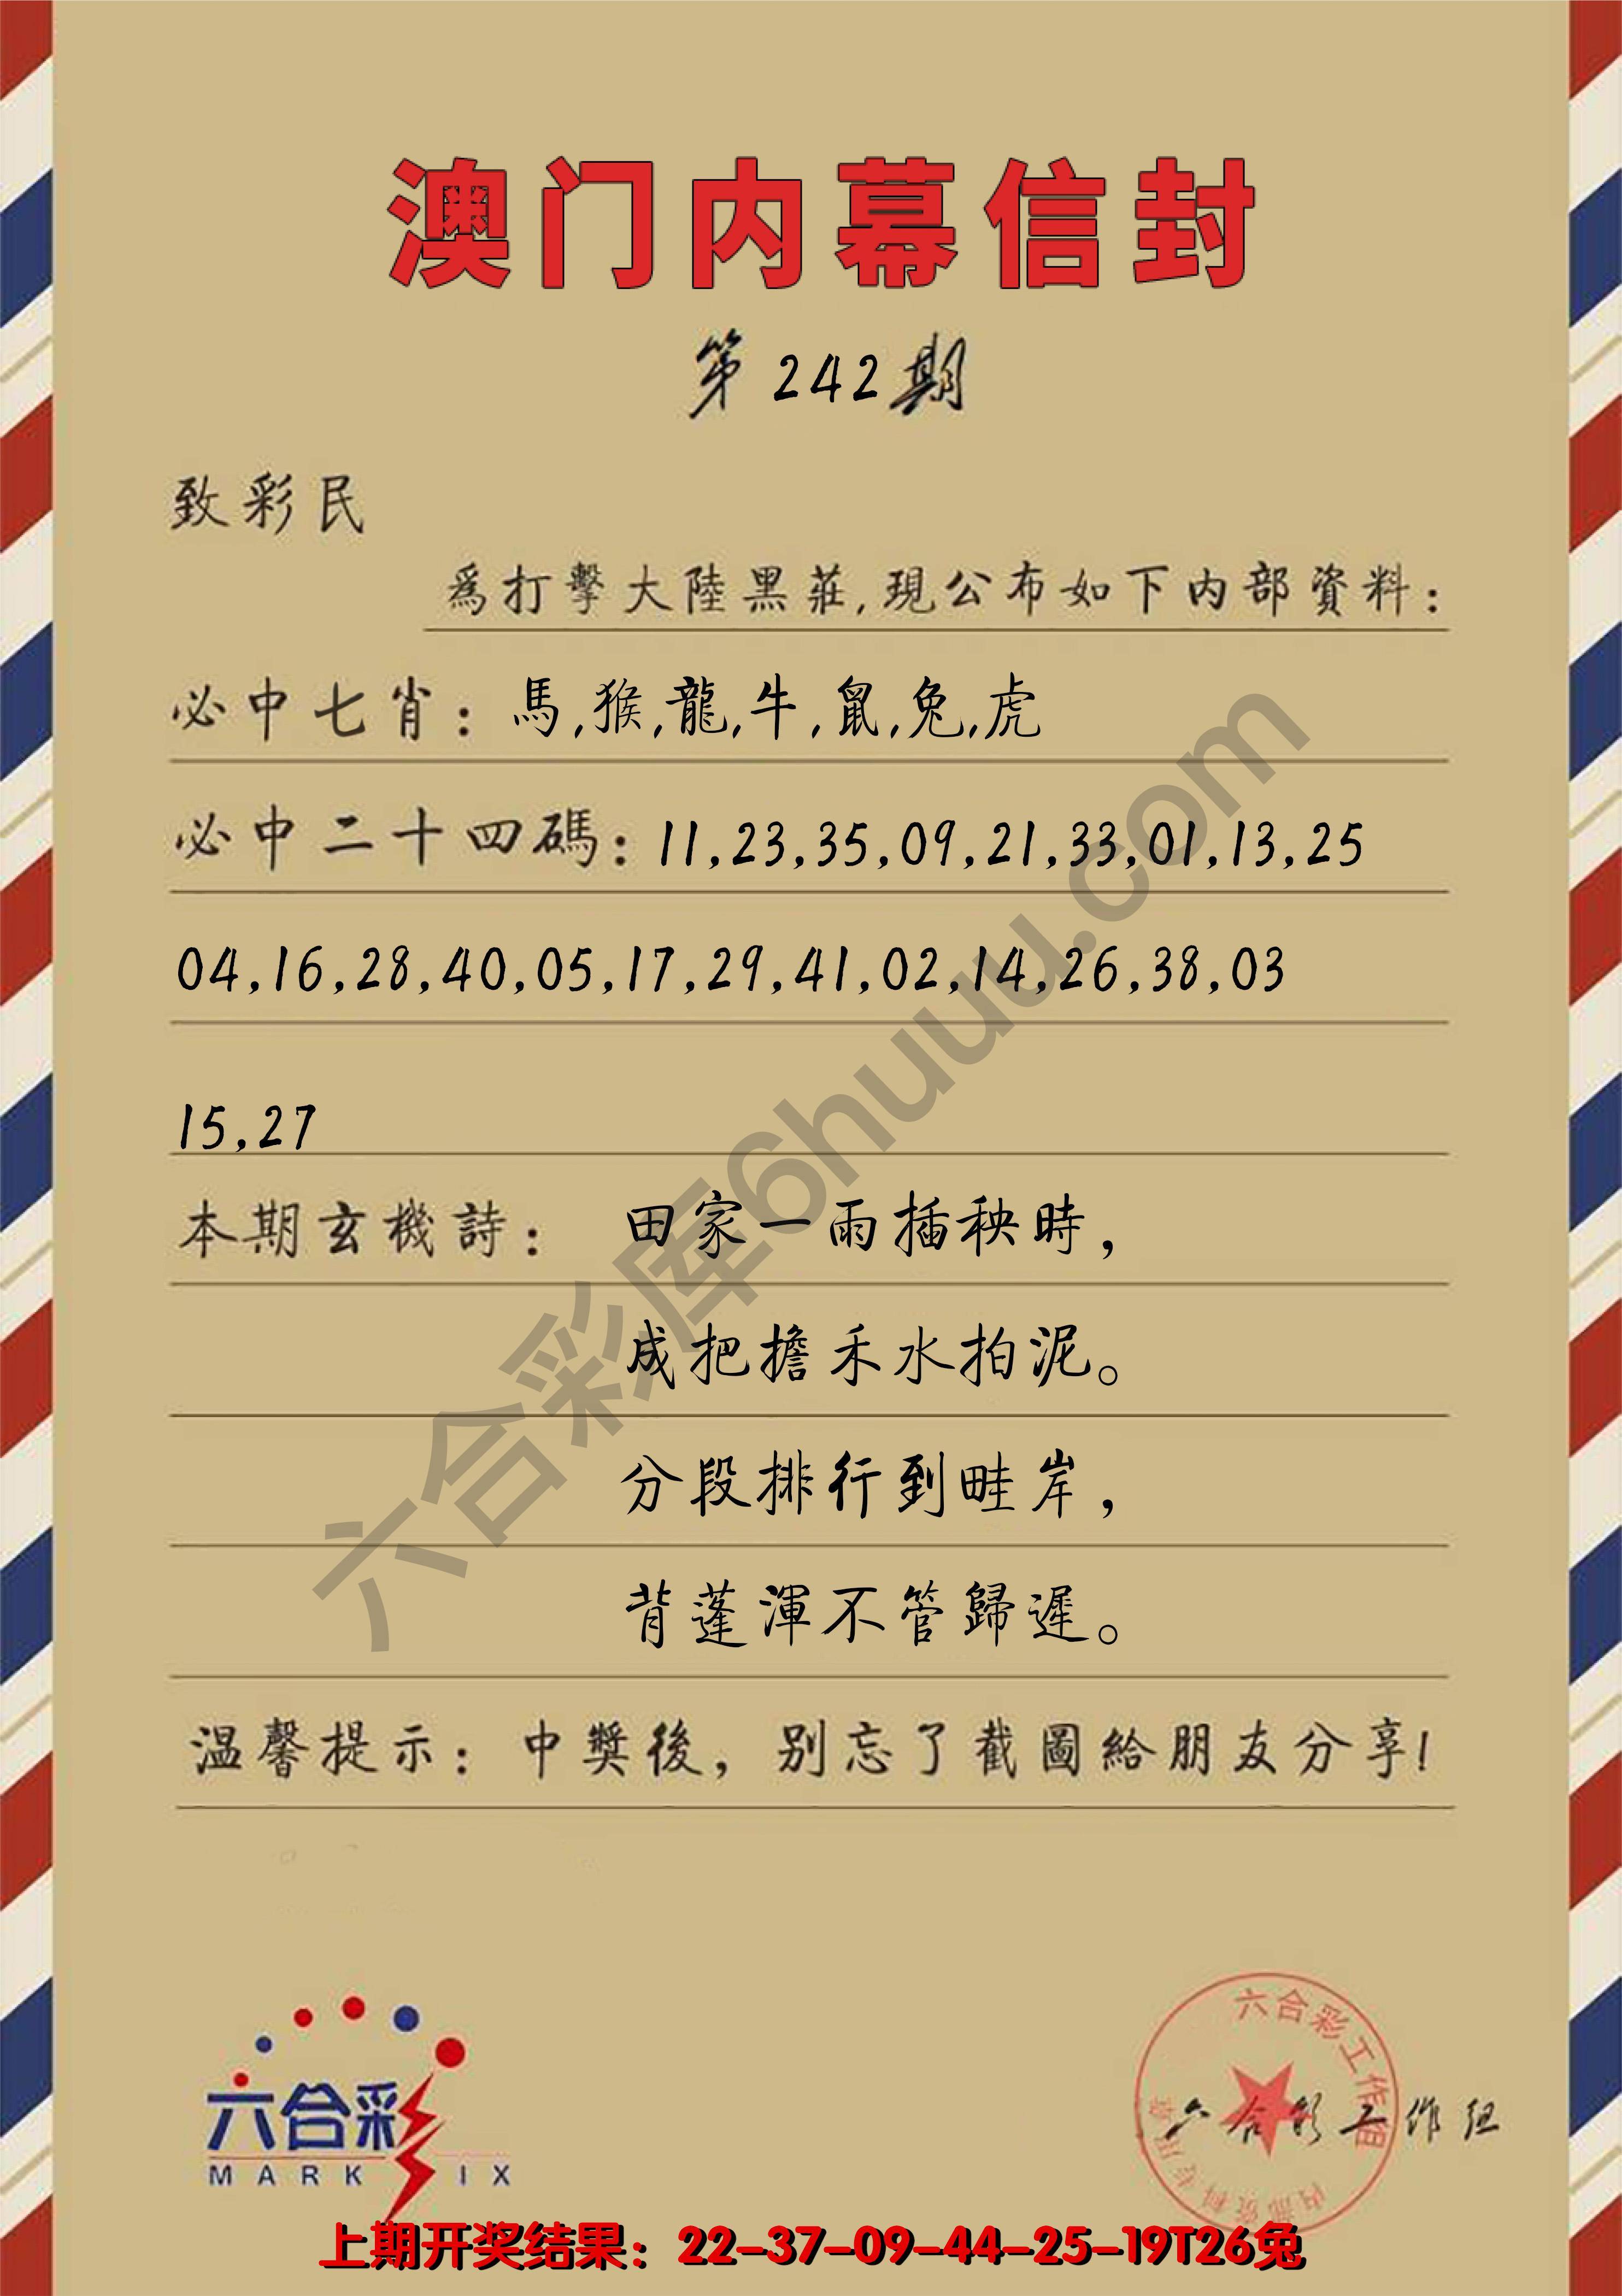 澳门内幕信封
第242期
致彩民
爲打擊大陸黑莊,現公布如下内部資料:
必中七肖:馬,猴,龍,牛,鼠,兔,虎
必中二十四碼:11,23,35,09,21,33,01,13,25
04,16,28,40,05,17,29,41,02,14,26,38,03
15,27
本期玄機詩: 田家一雨插秧時,
成把擔禾水拍泥。
分段排行到畦岸,
背蓬渾不管歸遲。
温馨提示:中獎後,别忘了截圖給朋友分享!
六合彩库6huuu.com
六合彩
MARK IX
六合彩工作组
内部资料专用章
六合彩工作组
上期开奖结果:22-37-09-44-25-19T26兔